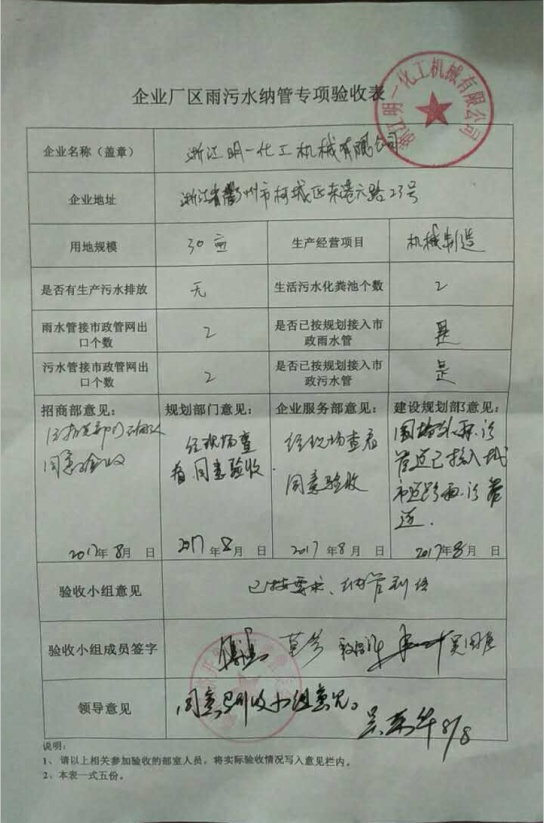 企业厂区雨污水纳管专项验收表
浙江明一化工机械有限公司
企业名称（盖章） 浙江明一化工机械有限公司
企业地址 浙江省衢州市柯城区东港六路23号
用地规模 30亩 生产经营项目 机械制造
是否有生产污水排放 无 生活污水化粪池个数 2
雨水管接市政管网出口个数 2 是否已按规划接入市政雨水管 是
污水管接市政管网出口个数 2 是否已按规划接入市政污水管 是
招商部意见：
同意验收
2017年8月 日
规划部门意见：
经现场查
看，同意验收
2017年8月 日
企业服务部意见：
经现场查看
同意验收
2017年8月 日
建设规划部意见：
围墙外雨、污
管道已接入城
市道路雨、污管
道．
2017年8月 日
验收小组意见 已按要求、纳管到位
验收小组成员签字
领导意见 同意验收小组意见。
8/8
说明：
1、请以上相关参加验收的部室人员，将实际验收情况写入意见栏内。
2、本表一式五份。